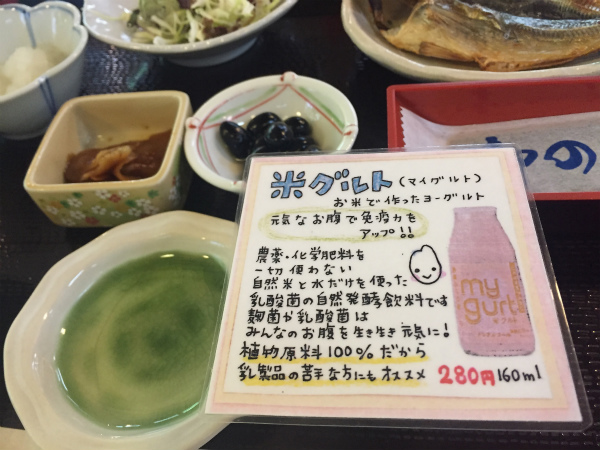 米グルト(マイグルト)
お米で作ったヨーグルト
元気なお腹で免疫力を
アップ!!
農薬・化学肥料を
一切使わない
自然米と水だけを使った
乳酸菌の自然発酵飲料です
麹菌や乳酸菌は
みんなのお腹を生き生き元気に!
植物原料100%だから
乳製品の苦手な方にもオススメ
280円 160ml
my
gurt